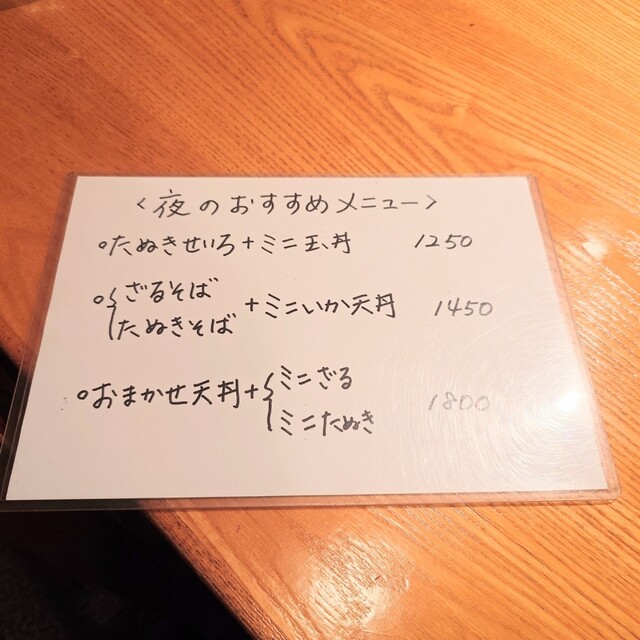 <夜のおすすめメニュー>
○たぬきせいろ+ミニ玉丼 1250
○{ざるそば
たぬきそば +ミニいか天丼 1450
○おまかせ天丼+{ミニざる
ミニたぬき 1800